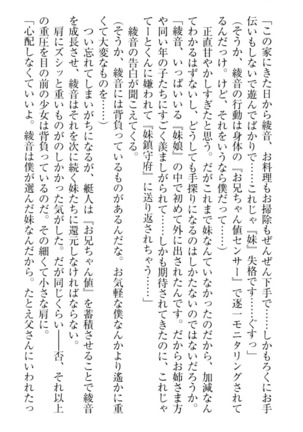 「この家にきた日から綾音、お料理もお掃除もぜんぜん下手で……しかもろくにお手
伝いもしないで遊んでばかりで……これじゃ『妹』失格です……ぐすっ」
（そうか、綾音の行動は身体の『お兄ちゃん値センサー』で逐一モニタリングされて
るんだっけ。けど、それをいうなら僕だって……）
正直甘やかしすぎたと思う。だがこれまで妹なんていなかったのだから、加減なん
てわかるはずないし、どうしても手探りになるのはしかたないのではないだろうか。
「綾音、いっぱいいる『妹娘』の中で初めて外に出されたんです。だからお姉さま方
や同い年の子たちにすごく羨ましがられて……しかも期待されてきたのに、これじゃ
てーとくんに嫌われて『妹鎮守府』に送り返されちゃう……」
綾音の告白が聞こえてくる。
（そうか、綾音には背負っているものがあるんだな。お気軽な僕なんかより遙かに重
くて大変なものを……）
つい忘れてしまいがちになるが、艇人は『お兄ちゃん値』を蓄積させることで綾音
を成長させ、綾音はそれを次に続く妹たちに還元しなければならない。
肩にズシッと重いものがのしかかった気がした。だが同じくらい――否、それ以上
の重圧を目の前の少女は背負っているのだ。その細くて小さな肩に。
「心配しなくていいよ。綾音は僕が選んだ妹なんだから。たとえ父さんにいわれたっ